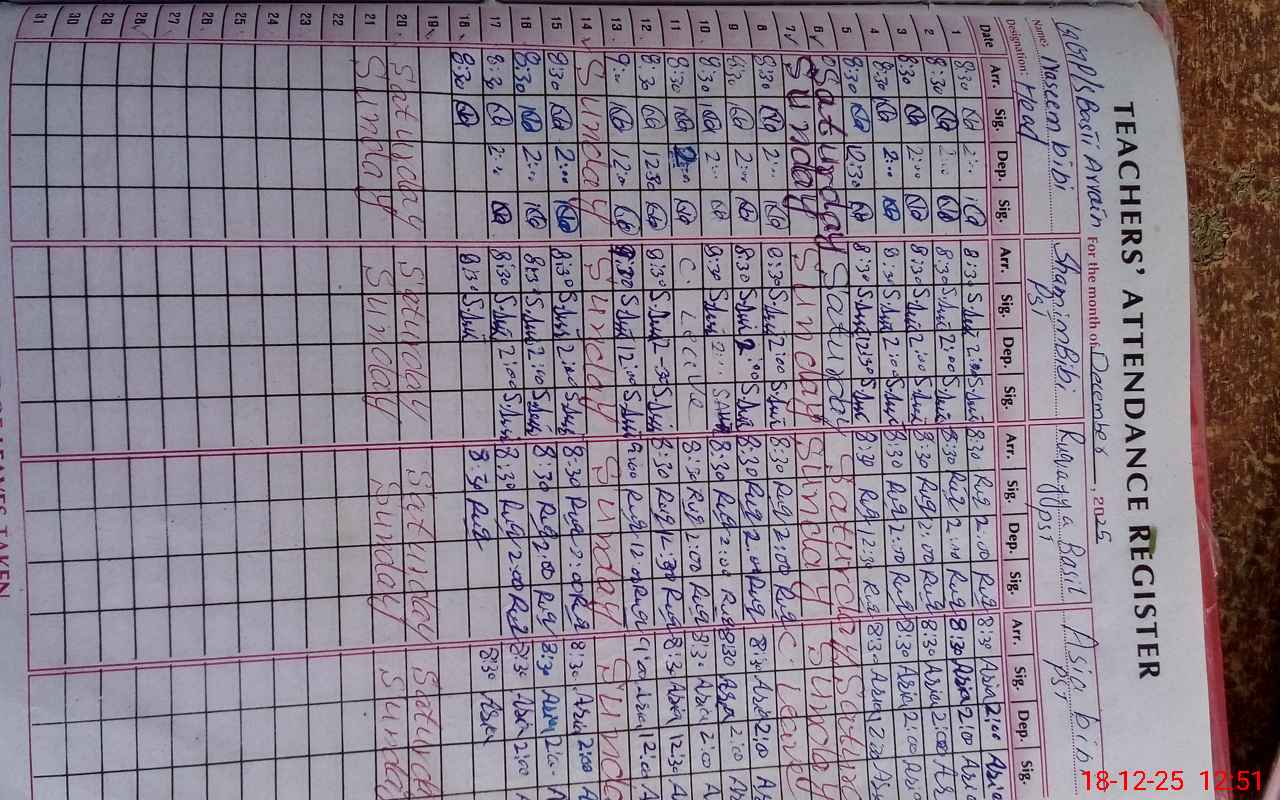 TEACHERS' ATTENDANCE REGISTER
GGMP/s Basti Arain For the month of December, 2025
Name: Naseem bibi Shamim Bibi Ruqayya Basil Asia bibi
Designation: Head PST PST PST
Date Arr. Sig. Dep. Sig. Arr. Sig. Dep. Sig. Arr. Sig. Dep. Sig. Arr. Sig. Dep. Sig.
1 8:30 2:00 8:30 S.bibi 2:00 S.bibi 8:30 Ruq 2:00 Ruq 8:30 Asia 2:00 Asia
2 8:30 2:00 8:30 S.bibi 2:00 S.bibi 8:30 Ruq 2:00 Ruq 8:30 Asia 2:00 Asia
3 8:30 2:00 8:30 S.bibi 2:00 S.bibi 8:30 Ruq 2:00 Ruq 8:30 Asia 2:00 As
4 8:30 2:00 8:30 S.bibi 2:00 S.bibi 8:30 Ruq 2:00 Ruq 8:30 Asia 2:00 Asia
5 8:30 12:30 8:30 S.bibi 12:30 S.bibi 8:30 Ruq 12:30 Ruq 8:30 Asia 2:00 Asia
6 Saturday Saturday Saturday Saturd
7 Sunday Sunday Sunday Sunday
8 8:30 2:00 8:30 S.bibi 2:00 S.bibi 8:30 Ruq 2:00 Ruq C. Leave
9 8:30 2:00 8:30 S.bibi 2:00 S.bibi 8:30 Ruq 2:00 Ruq 8:30 Asia 2:00 As
10 8:30 2:00 8:30 S.bibi 2:00 S.bibi 8:30 Ruq 2:00 Ruq 8:30 Asia 2:00 As
11 8:30 2:00 C. Leave 8:30 Ruq 2:00 Ruq 8:30 Asia 2:00 A
12 8:30 12:30 8:30 S.bibi 2-30 S.bibi 8:30 Ruq 12:30 Ruq 8:30 Asia 12:30 A
13 9:00 12:00 9:00 S.bibi 12:00 S.bibi 9:00 Ruq 12:00 Ruq 9:00 Asia 12:00 A
14 Sunday Sunday Sunday Sunda
15 8:30 2:00 8:30 S.bibi 2:00 S.bibi 8:30 Ruq 2:00 Ruq 8:30 Asia 2:00 A
16 8:30 2:00 8:30 S.bibi 2:00 S.bibi 8:30 Ruq 2:00 Ruq 8:30 Asia 2:00 A
17 8:30 2:00 8:30 S.bibi 2:00 S.bibi 8:30 Ruq 2:00 Ruq 8:30 Asia 2:00
18 8:30 8:30 S.bibi 8:30 Ruq 8:30 Asia
19
20 Saturday Saturday Saturday Saturda
21 Sunday Sunday Sunday Sunda
22
23
24
25
26
27
28
29
30
31
LEAVES TAKEN
18-12-25 12:51